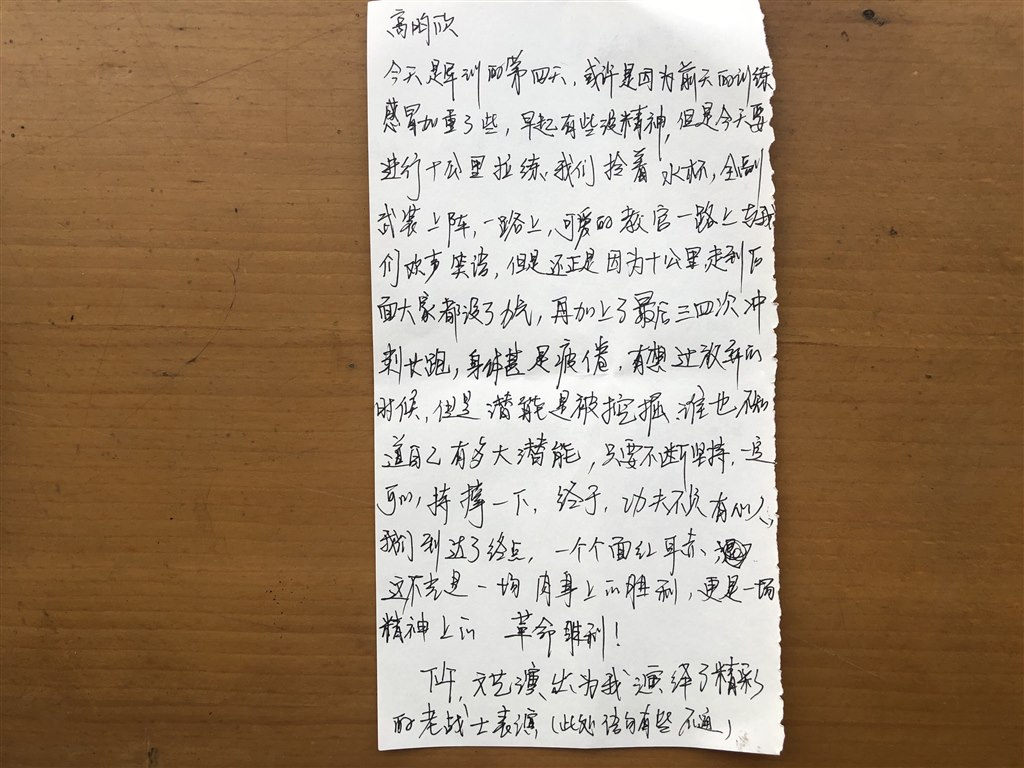 高昀欣
今天是军训的第四天，或许是因为前天的训练
感冒加重了些，早起有些没精神，但是今天要
进行十公里拉练、我们拎着水杯，全副
武装上阵，一路上，可爱的教官一路上与我
们欢声笑语，但是还正是因为十公里走到后
面大家都没了力气，再加上了最后三四次冲
刺跑，身体甚是疲倦，有想过放弃的
时候，但是潜能是被挖掘，谁也不知
道自己有多大潜能，只要不断坚持，一定
可以，持撑一下，终于，功夫不负有心人，
我们到达了终点，一个个面红耳赤、
这不光是一场肉身上的胜利，更是一场
精神上的 革命胜利！
下午，文艺演出为我演绎了精彩
的老战士表演（此处语句有些不通）